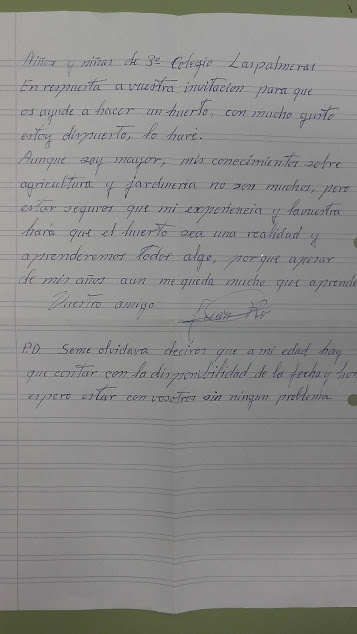 Niños y niñas de 3º Colegio Laspalmeras
En respuesta a vuestra invitacion para que
os ayude a hacer un huerto, con mucho gusto
estoy dispuesto, lo haré.
Aunque soy mayor, mis conocimientos sobre
agricultura y jardineria no son muchos, pero
estar seguros que mi experiencia y lavuestra
hará que el huerto sea una realidad y
aprenderemos todos algo, porque apesar
de mis años aun me queda mucho que aprende
Vuestro amigo Juan
P.D. Seme olvidava deciros que a mi edad hay
que contar con la disponibilidad de la fecha y hor
espero estar con vosotros sin ningun problema